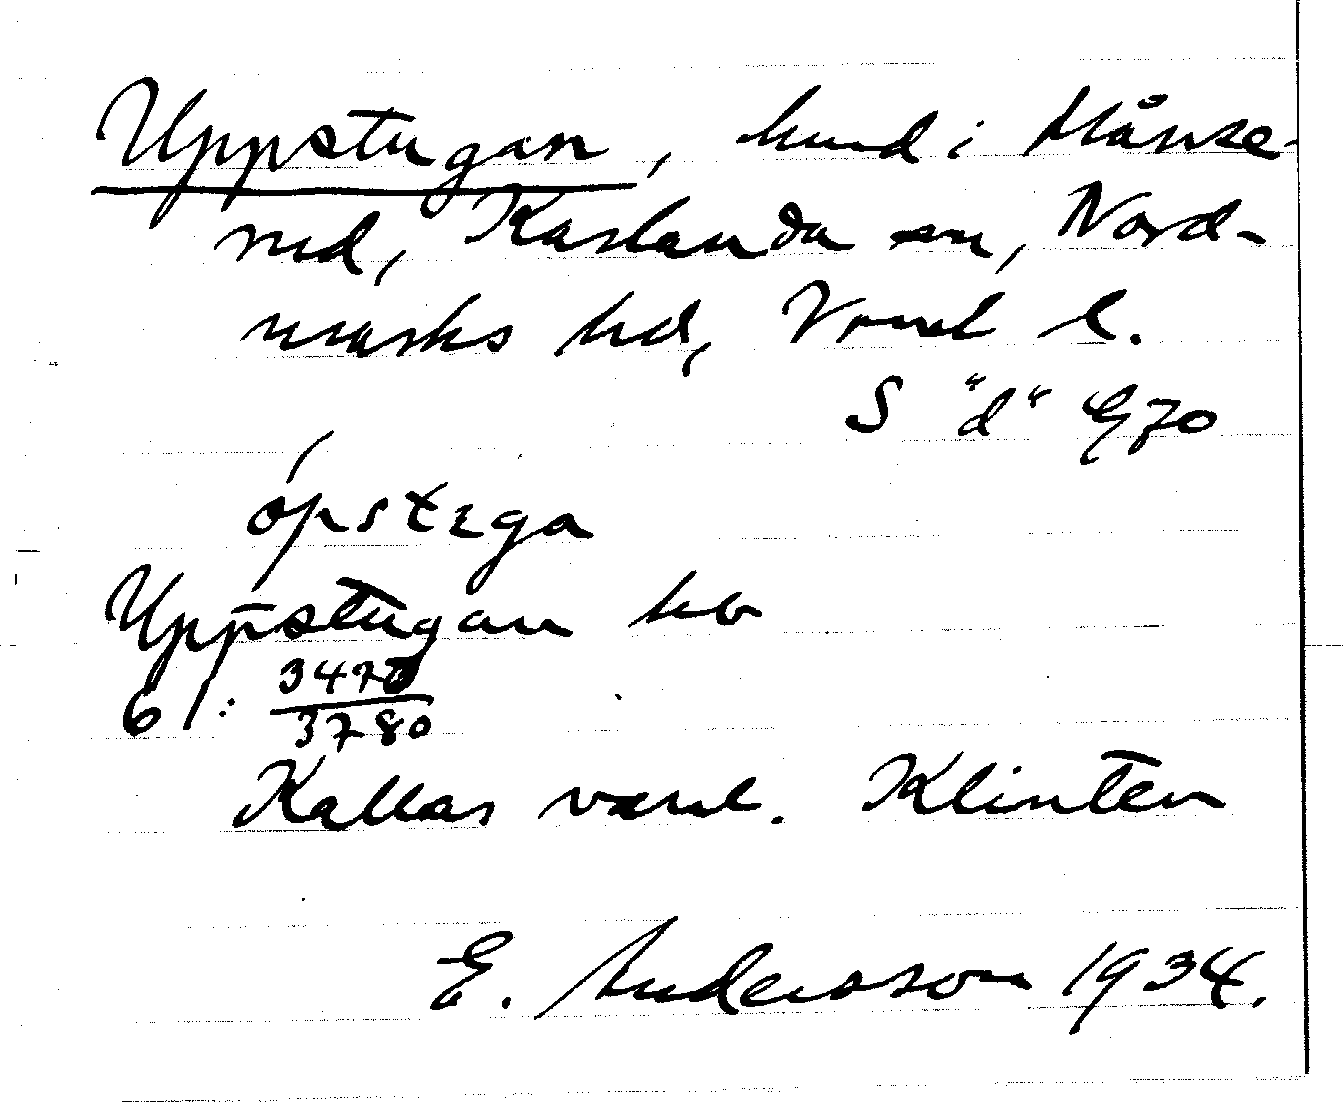 Uppstugan, hmd i Månse-
rud, Karlanda sn, Nord-
marks hd, Vrml l.
S "d" G70
ópstega
Uppstugan hb
61: 3470
3780
Kallas vanl. Klinten
E. Andersson 1934.